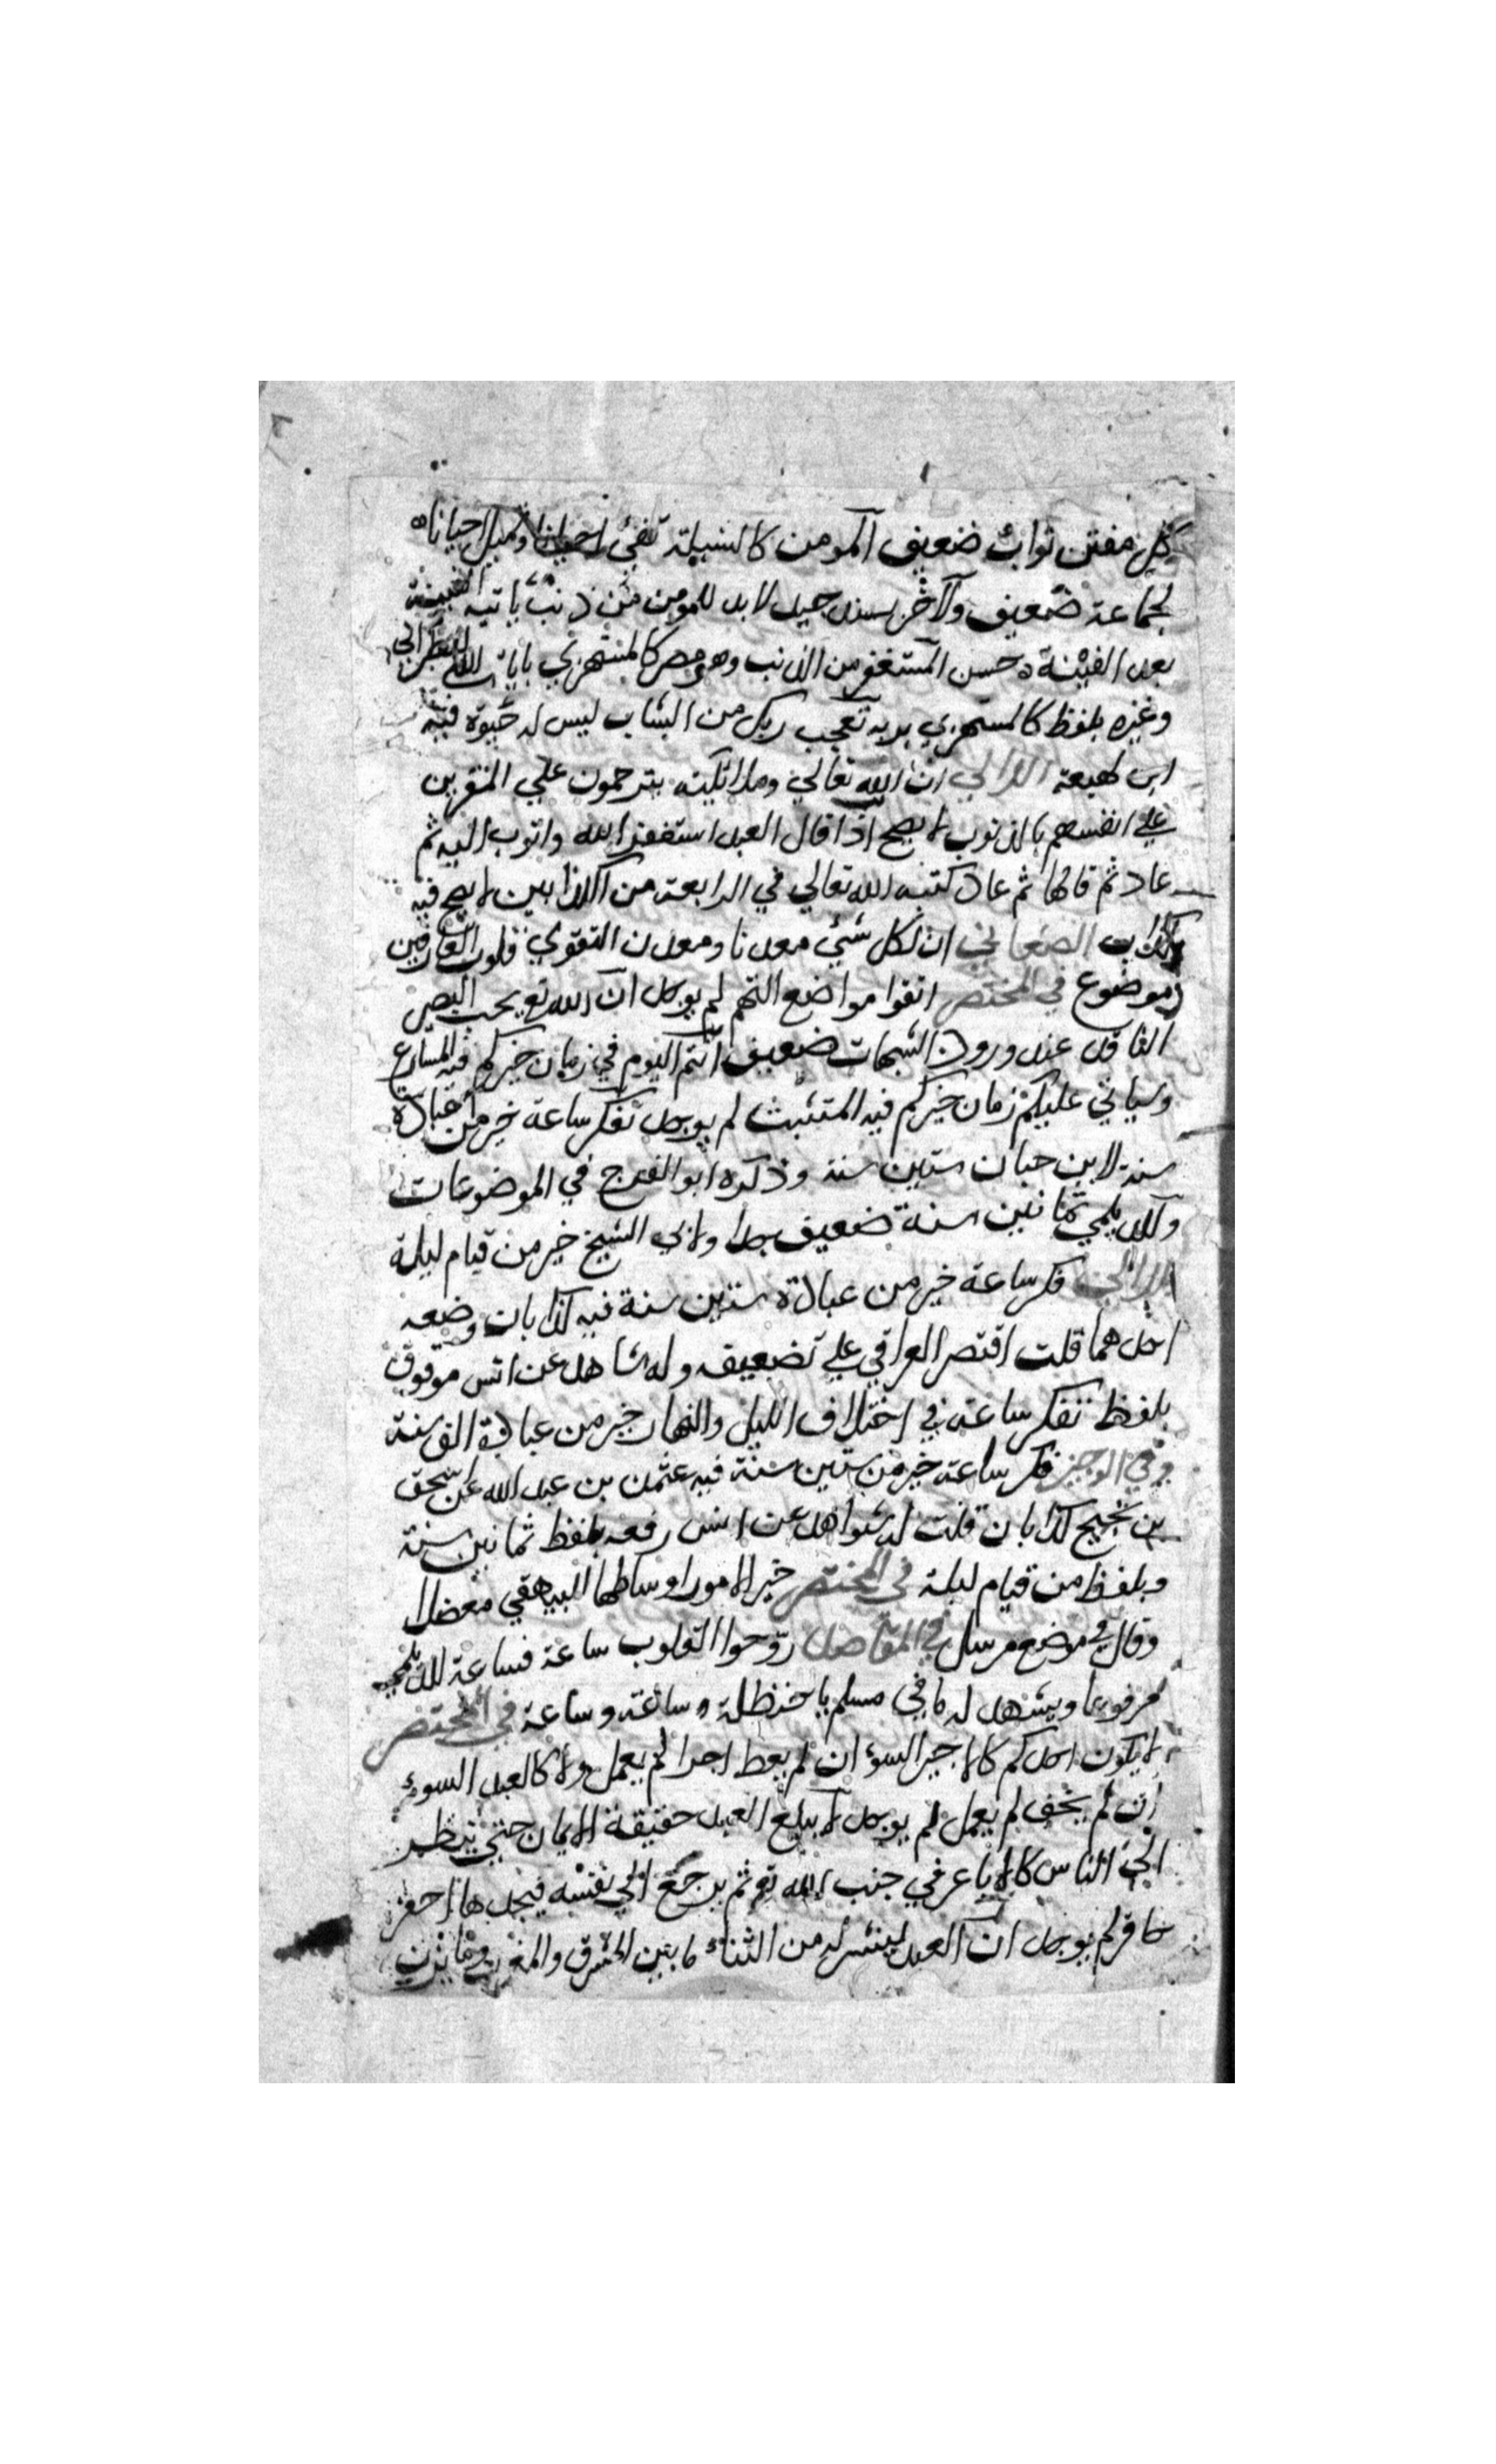 كل مفتن تواب ضعيف المومن كالسنبلة تفئ احيانا وتميل احيانا
لجماعة ضعيف ولآخر بسند جيد لابد للمومن من ذنب ياتيه الفينة
بعد الفينة حسن المستغفر من الذنب وهو مصر كالمستهزي بايات الله للطبراني
وغيره بلفظ كالمستهزي بربه تعجب ربك من الشاب ليس له صبوة فيه
ابن لهيعة اللالي ان الله تعالي وملائكته يترحمون علي المقرين
علي انفسهم بالذنوب لا يصح اذا قال العبد استغفر الله واتوب اليه ثم
عاد ثم قالها ثم عاد كتبه الله تعالي في الرابعة من الكذابين لا يصح فيه
كذاب الصغاني ان لكل شئ معدنا ومعدن التقوي قلوب العارفين
موضوع في المختصر اتقوا مواضع التهم لم يوجد ان الله تع يحب البصر
الناقد عند ورود الشبهات ضعيف انتم اليوم في زمان خيركم فيه المسارع
وسياتي عليكم زمان خيركم فيه المتثبت لم يوجد تفكر ساعة خير من عبادة
سنة لابن حبان ستين سنة وذكره ابو الفرج في الموضوعات
وللديلمي ثمانين سنة ضعيف جدا ولابي الشيخ خير من قيام ليلة
اللالي فكر ساعة خير من عبادة ستين سنة فيه كذابان وضعه
احدهما قلت اقتصر العراقي علي تضعيفه وله شاهد عن انس موقوف
بلفظ تفكر ساعة في اختلاف الليل والنهار خير من عبادة الف سنة
وفي الوجيز فكر ساعة خير من ستين سنة فيه عثمن بن عبد الله عن اسحق
بن نجيح كذابان قلت له شواهد عن انس رفعه بلفظ ثمانين سنة
وبلفظ من قيام ليلة في المختصر خير الامور اوساطها البيهقي معضلا
وقال في موضع مرسل في المقاصد روّحوا القلوب ساعة فساعة للديلمي
مرفوعا ويشهد له ما في مسلم يا حنظلة ساعة وساعة في المختصر
لا يكون احدكم كالاجير السوء ان لم يعط اجرا لم يعمل ولا كالعبد السوء
ان لم يخف لم يعمل لم يوجد لا يبلغ العبد حقيقة الايمان حتي ينظر
الي الناس كالاباعر في جنب الله تع ثم يرجع الي نفسه فيجدها احقر
حاقر لم يوجد ان العبد لينشر له من الثناء ما بين المشرق والمغرب وما يزن